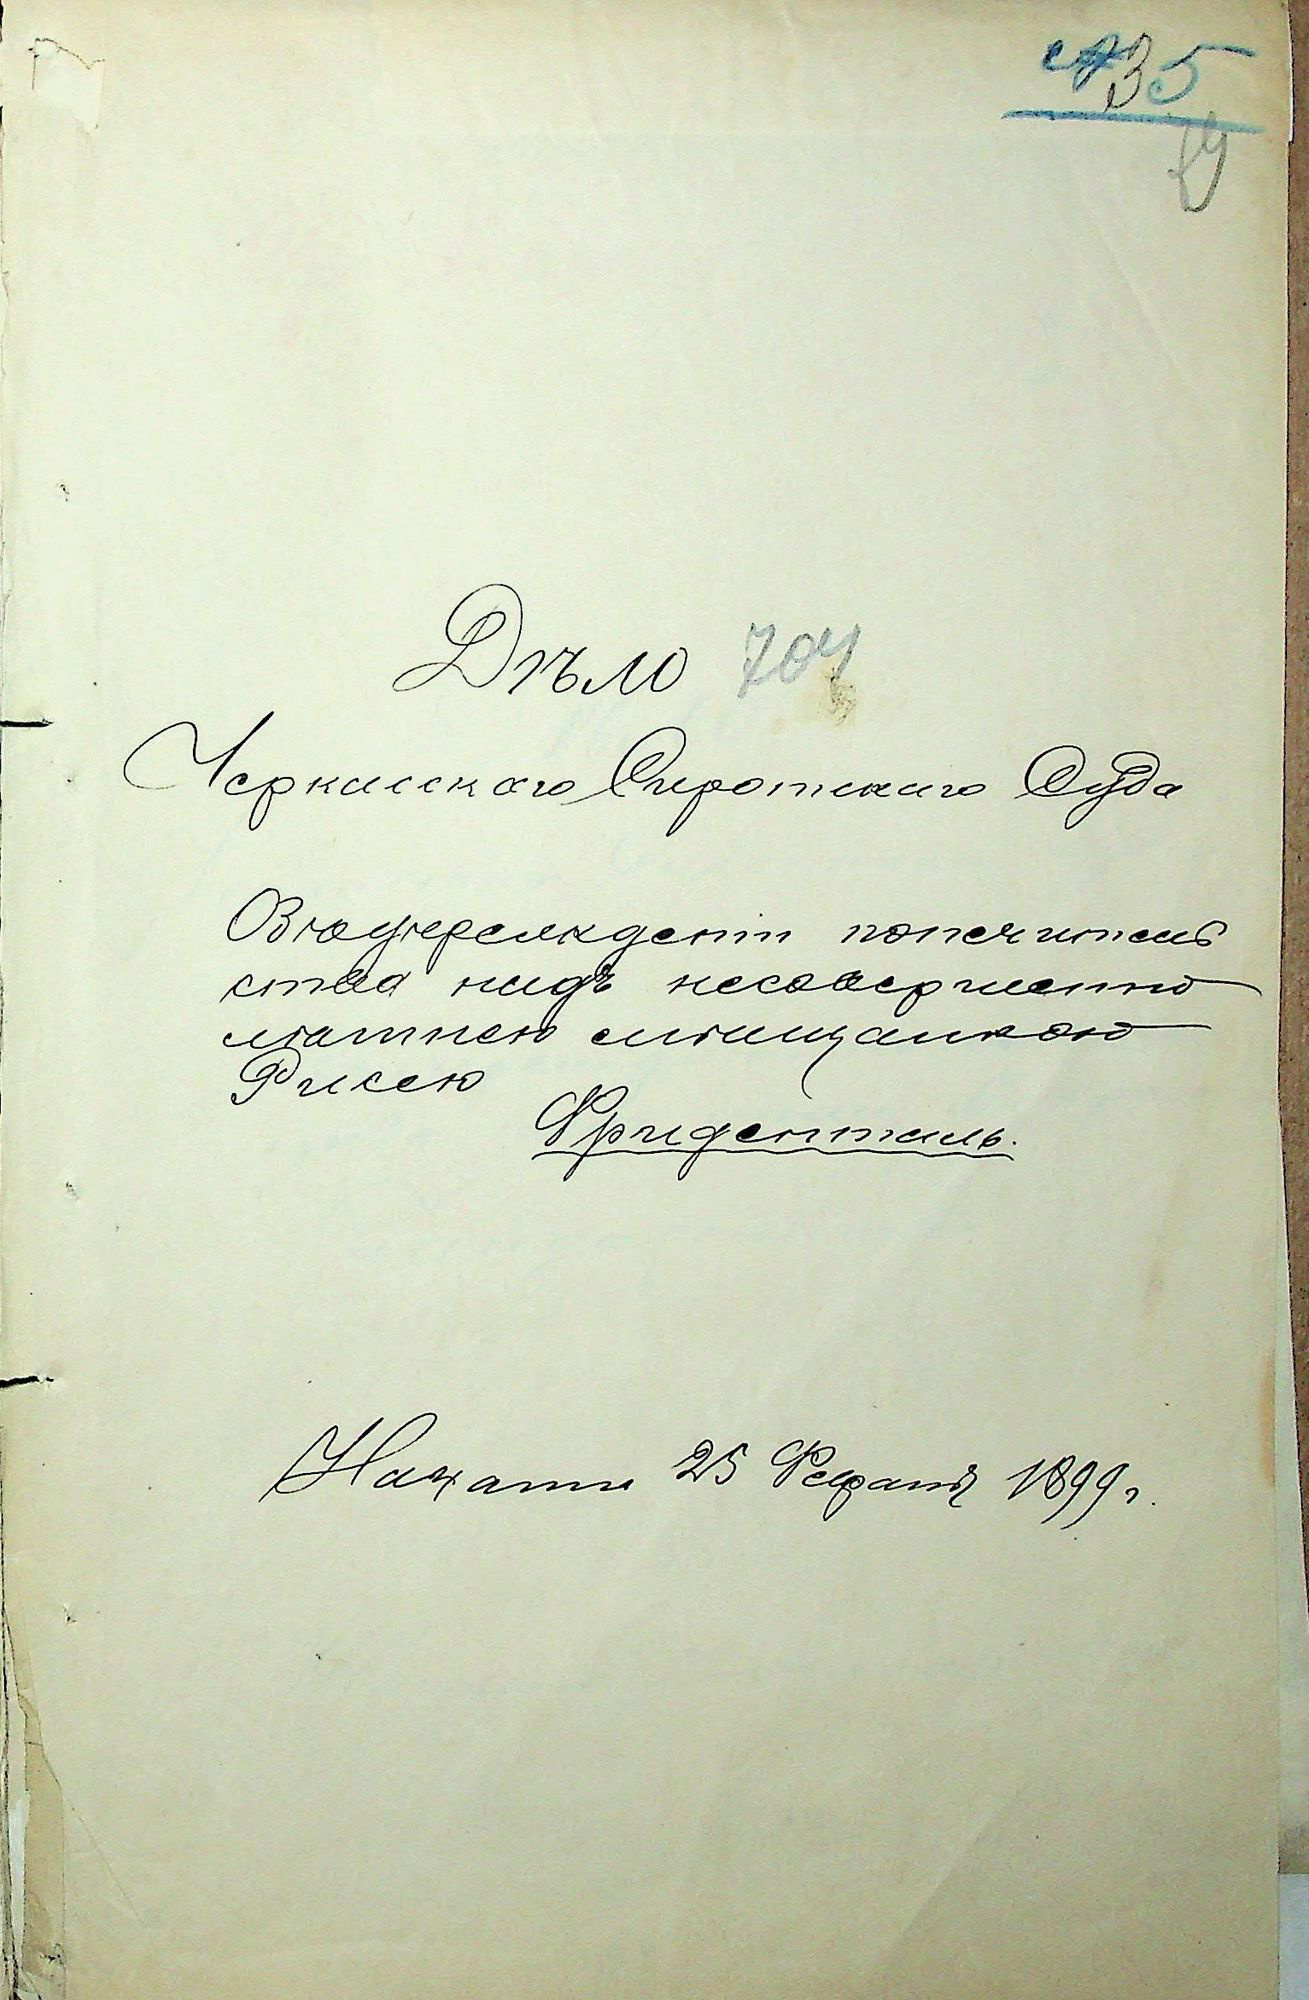 № 35
Дѣло 704
Черкасскаго Сиротскаго Суда
Объ учрежденіи попечитель
ства надъ несовершенно
лѣтнею мѣщанкою
Рисею
Фриденталь.
Начато 25 1899 г.